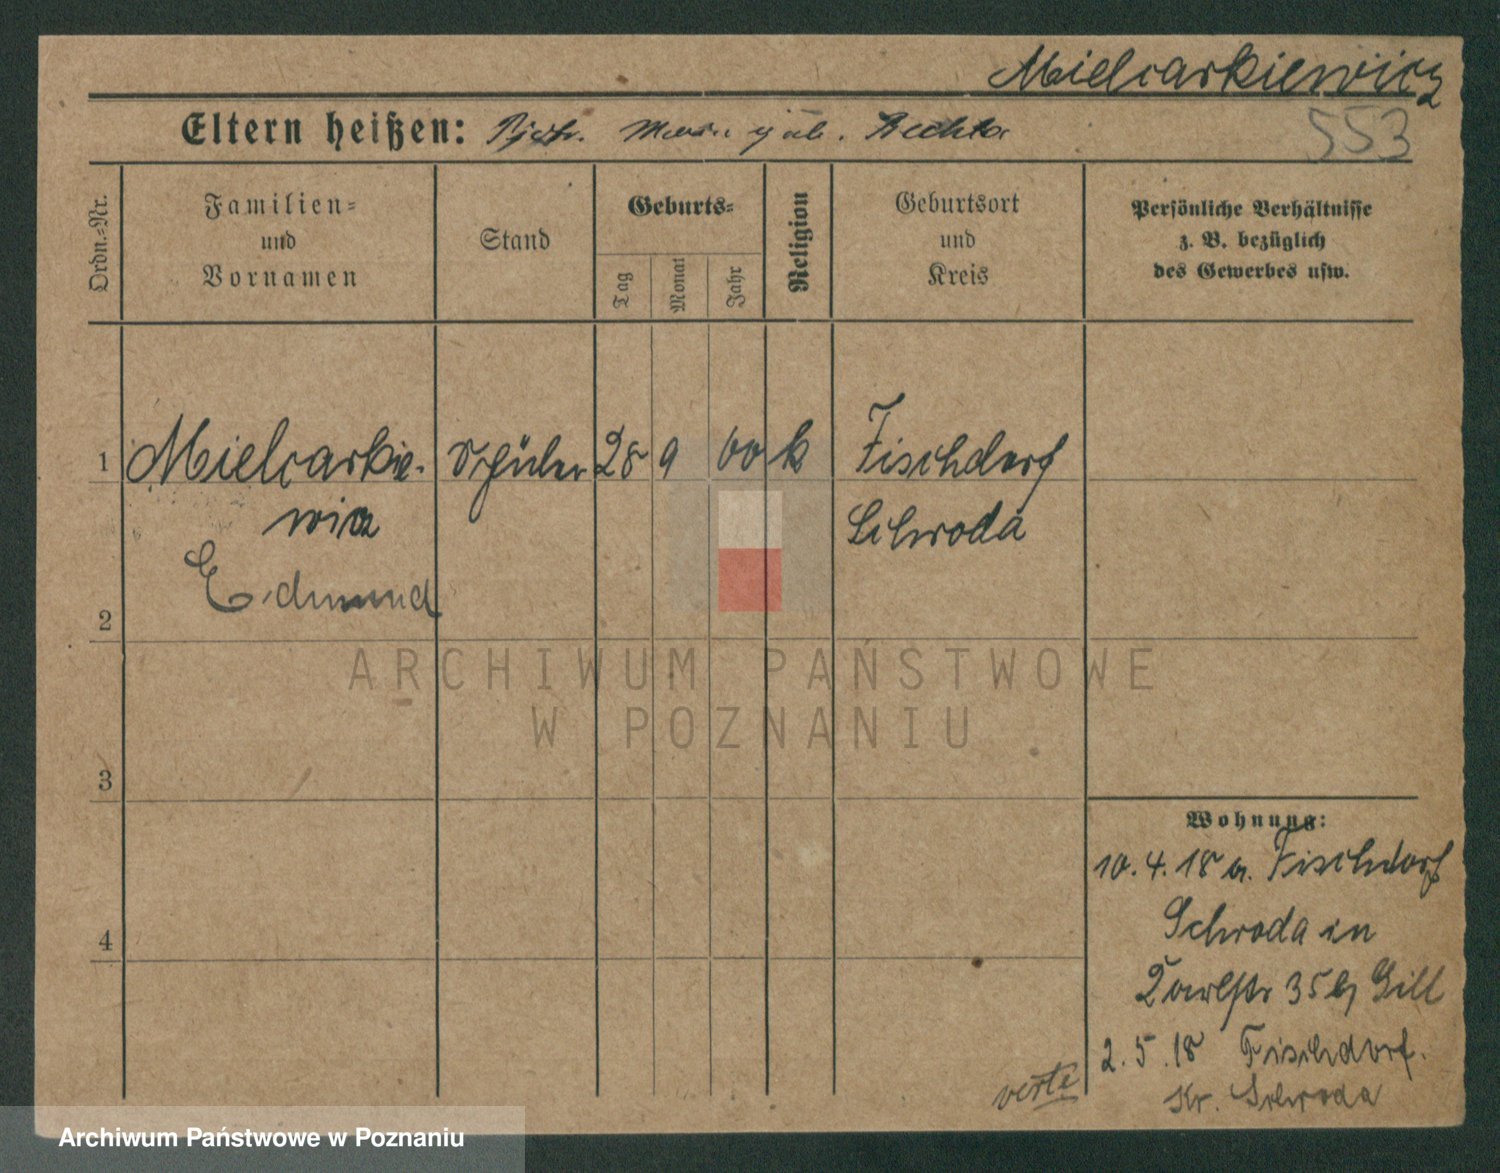 Mielcarkiewicz
553
Eltern heißen: geb.
Ordn.-Nr.
Familien-
und
Vornamen
Stand
Geburts-
Tag
Monat
Jahr
Religion
Geburtsort
und
Kreis
Persönliche Verhältnisse
z. B. bezüglich
des Gewerbes usw.
1 Mielcarkie- Schüler 28 9 00 k Fischdorf
wicz Schroda
Edmund
2
ARCHIWUM PAŃSTWOWE
W POZNANIU
3
4
Wohnung:
10.4.18 a. Fischdorf
Schroda in
35 Gill
2.5.18 Fischdorf.
Kr. Schroda
verte
Archiwum Państwowe w Poznaniu